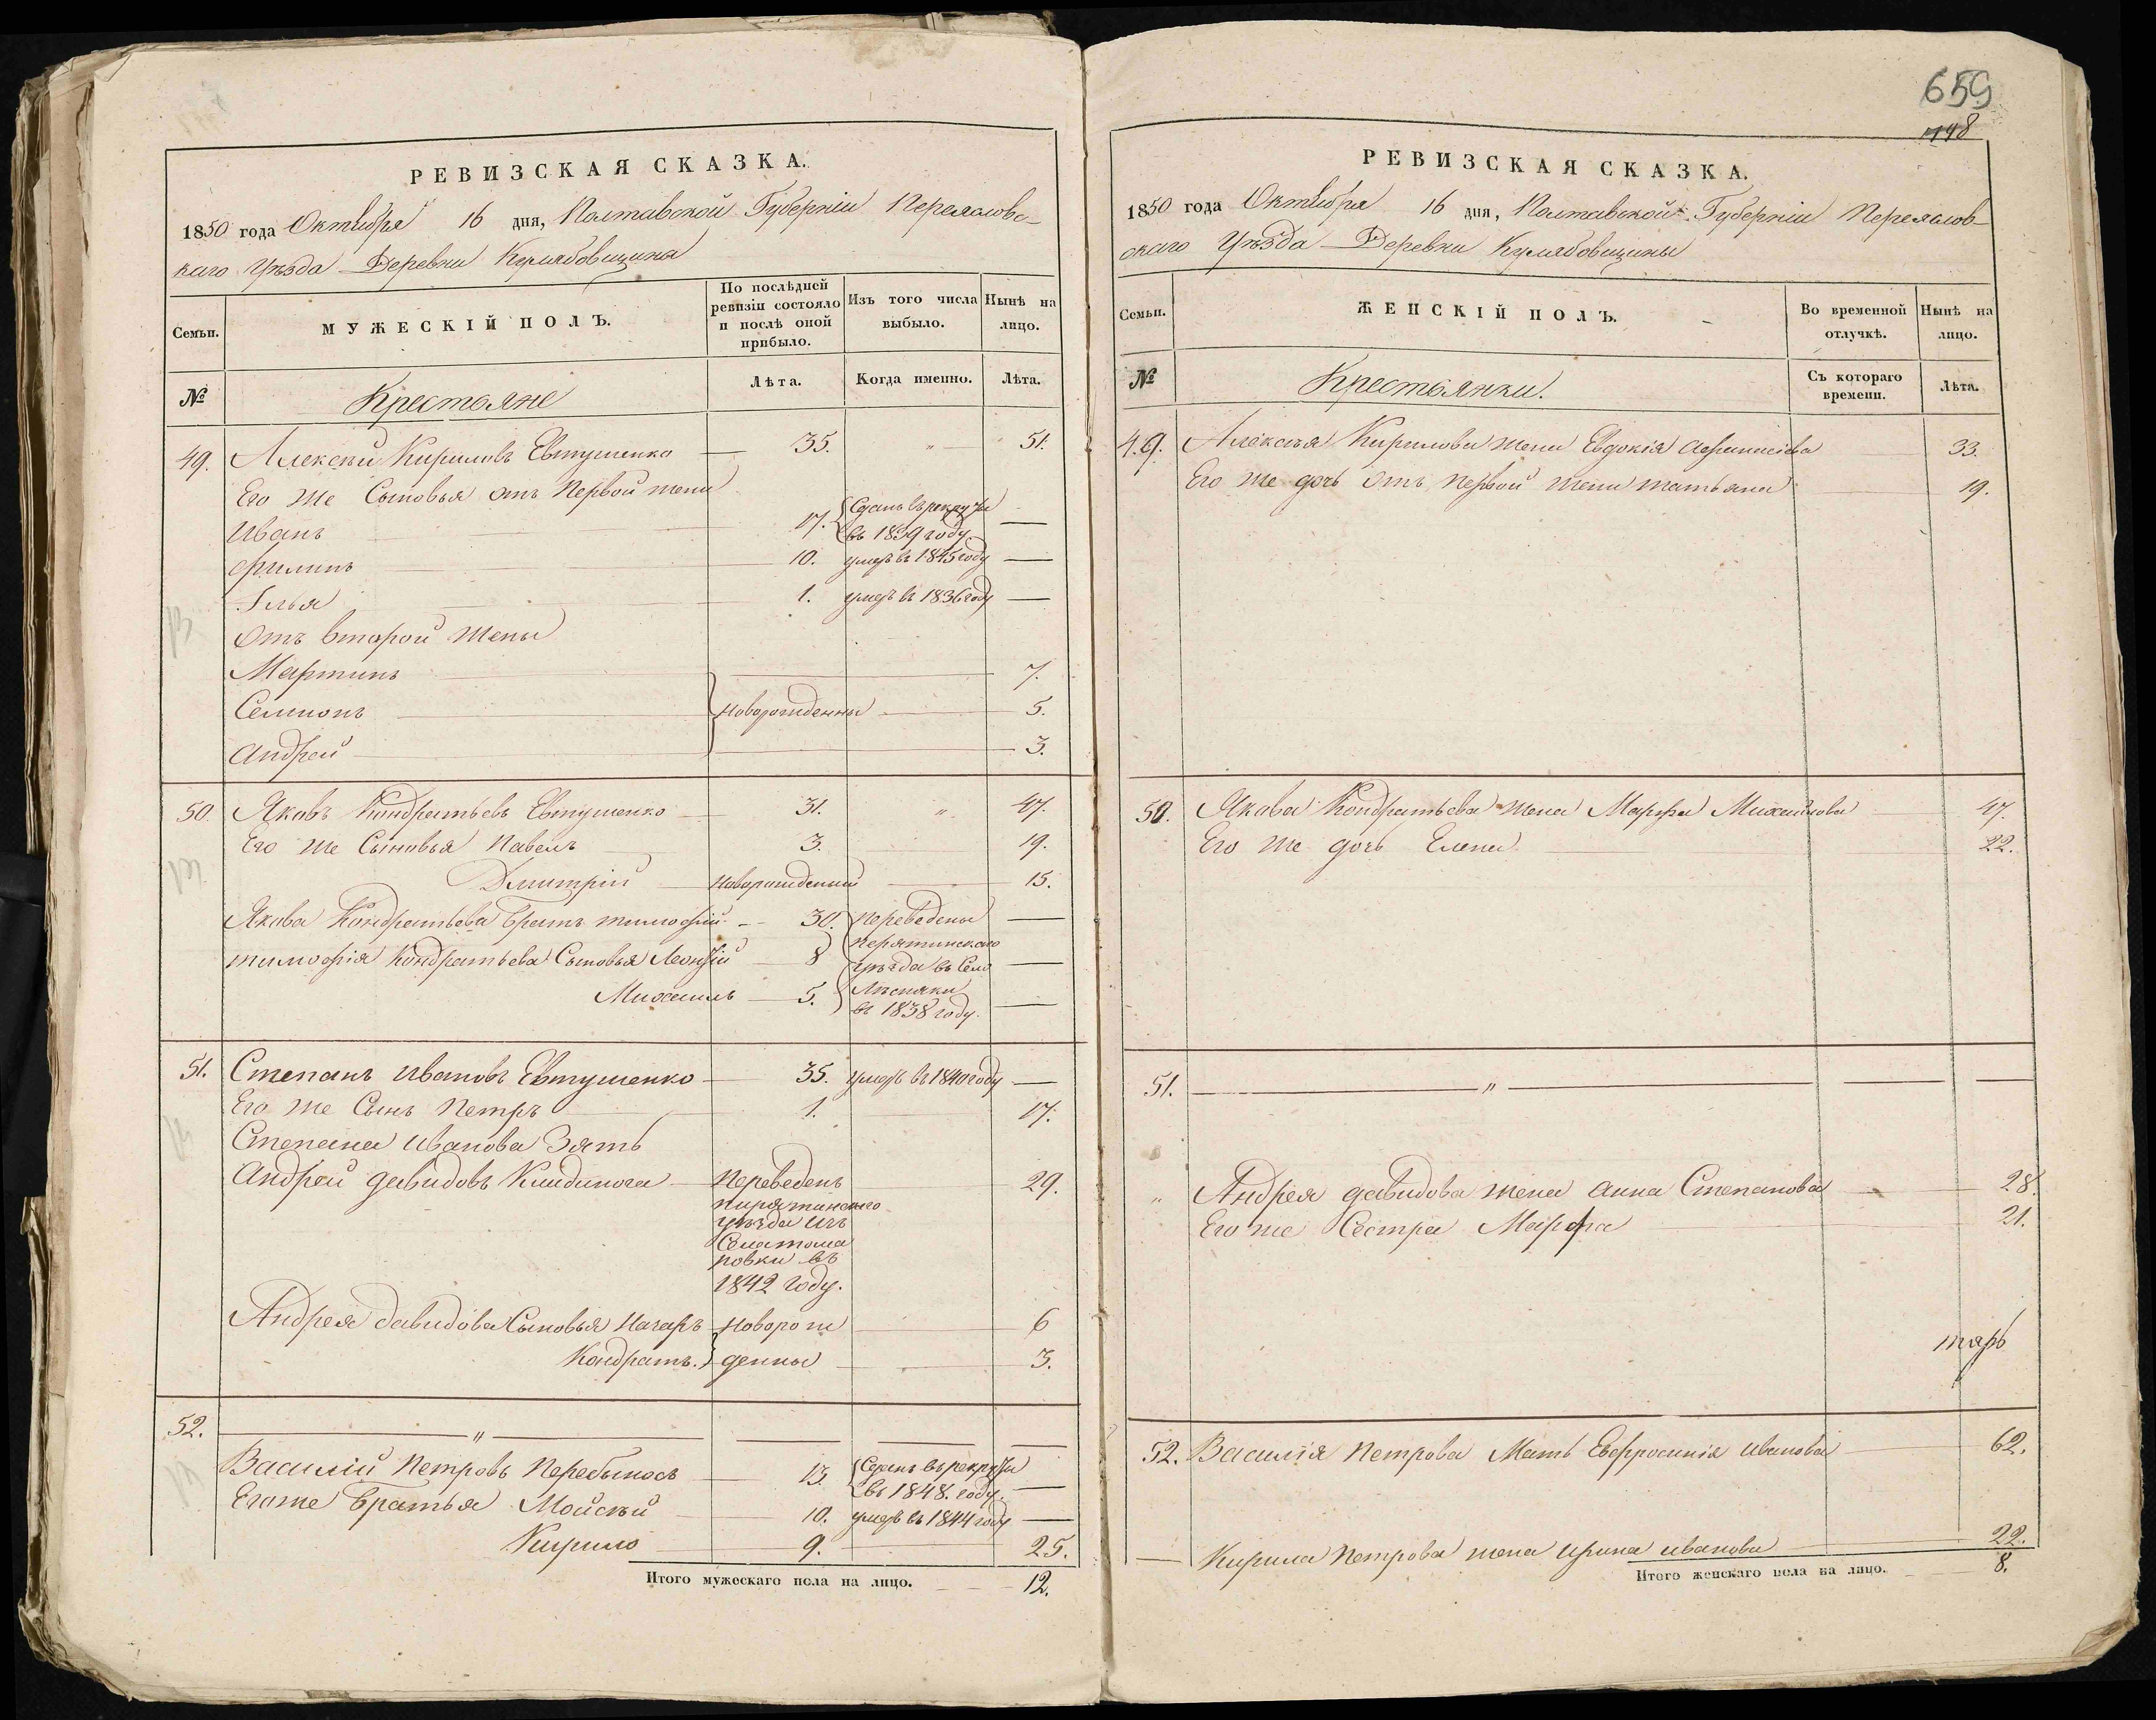 РЕВИЗСКАЯ СКАЗКА.
1850 года Октября 16 дня, Полтавской Губерніи Переяловс-
каго Уѣзда Деревни Кулябовщина
Семьи.
МУЖЕСКІЙ ПОЛЪ.
По послѣдней ревизіи состояло и послѣ оной прибыло.
Изъ того числа выбыло.
Нынѣ на лицо.
№
Крестьяне
Лѣта.
Когда именно.
Лѣта.
49. Алексѣй Кириловъ Евтушенко 35. " 51.
Его же Сыновья отъ Первой жены
Иванъ 17. Сданъ въ рекруты въ 1839 году
Филипъ 10. умеръ въ 1845 году
Илья 1. умеръ въ 1836 году
Отъ второй жены
Мартинъ 7.
Семионъ новорожденны 5.
Андрей 3.
50. Яковъ Кондратьевъ Евтушенко 31. " 47.
Его же Сыновья Павелъ 3. 19.
Дмитрій новорожденный 15.
Якова Кондратьева братъ тимофій 30. переведены
тимофія Кондратьева Сыновья Леонтій 8 Пирятинскаго уѣзда въ Село
Михаилъ 5. въ 1838 году.
51. Степанъ Ивановъ Евтушенко 35. умеръ въ 1840 году
Его же Сынъ Петръ 1. 17.
Степана Иванова Зять
Андрей давидовъ 29.
Переведенъ
пирятинскаго
уѣзда изъ
ровки въ
1842 году.
Андрея давидова Сыновья Назаръ новорож 6
Кондратъ. денны 3.
52. "
Василій Петровъ Перебыносъ 13 Сданъ въ рекруты въ 1848. году.
Егоже братья Мойсѣй 10. умеръ въ 1844 году
Кирило 9. 25.
Итого мужескаго пола на лицо. 12.
659
748
РЕВИЗСКАЯ СКАЗКА.
1850 года Октября 16 дня, Полтавской Губерніи Переяслов-
скаго Уѣзда Деревни Кулябовщины
Семьи.
ЖЕНСКІЙ ПОЛЪ.
Во временной отлучкѣ.
Нынѣ на лицо.
№
Крестьянки.
Съ котораго времени.
Лѣта.
49. Алексѣя Кирилова жена Евдокія Афанасіева 33.
Его же дочь отъ первой жены татьяна 19.
50. Якова Кондратьева жена Марфа Михайлова 47.
Его же дочь Елена 22.
51. "
" Андрея давидова жена анна Степанова 28.
Его же Сестра Марфа 21.
52. Василія Петрова Мать Евфросинія Иванова 62.
Кирила Петрова жена Ирина иванова 22.
Итого женскаго пола на лицо. 8.